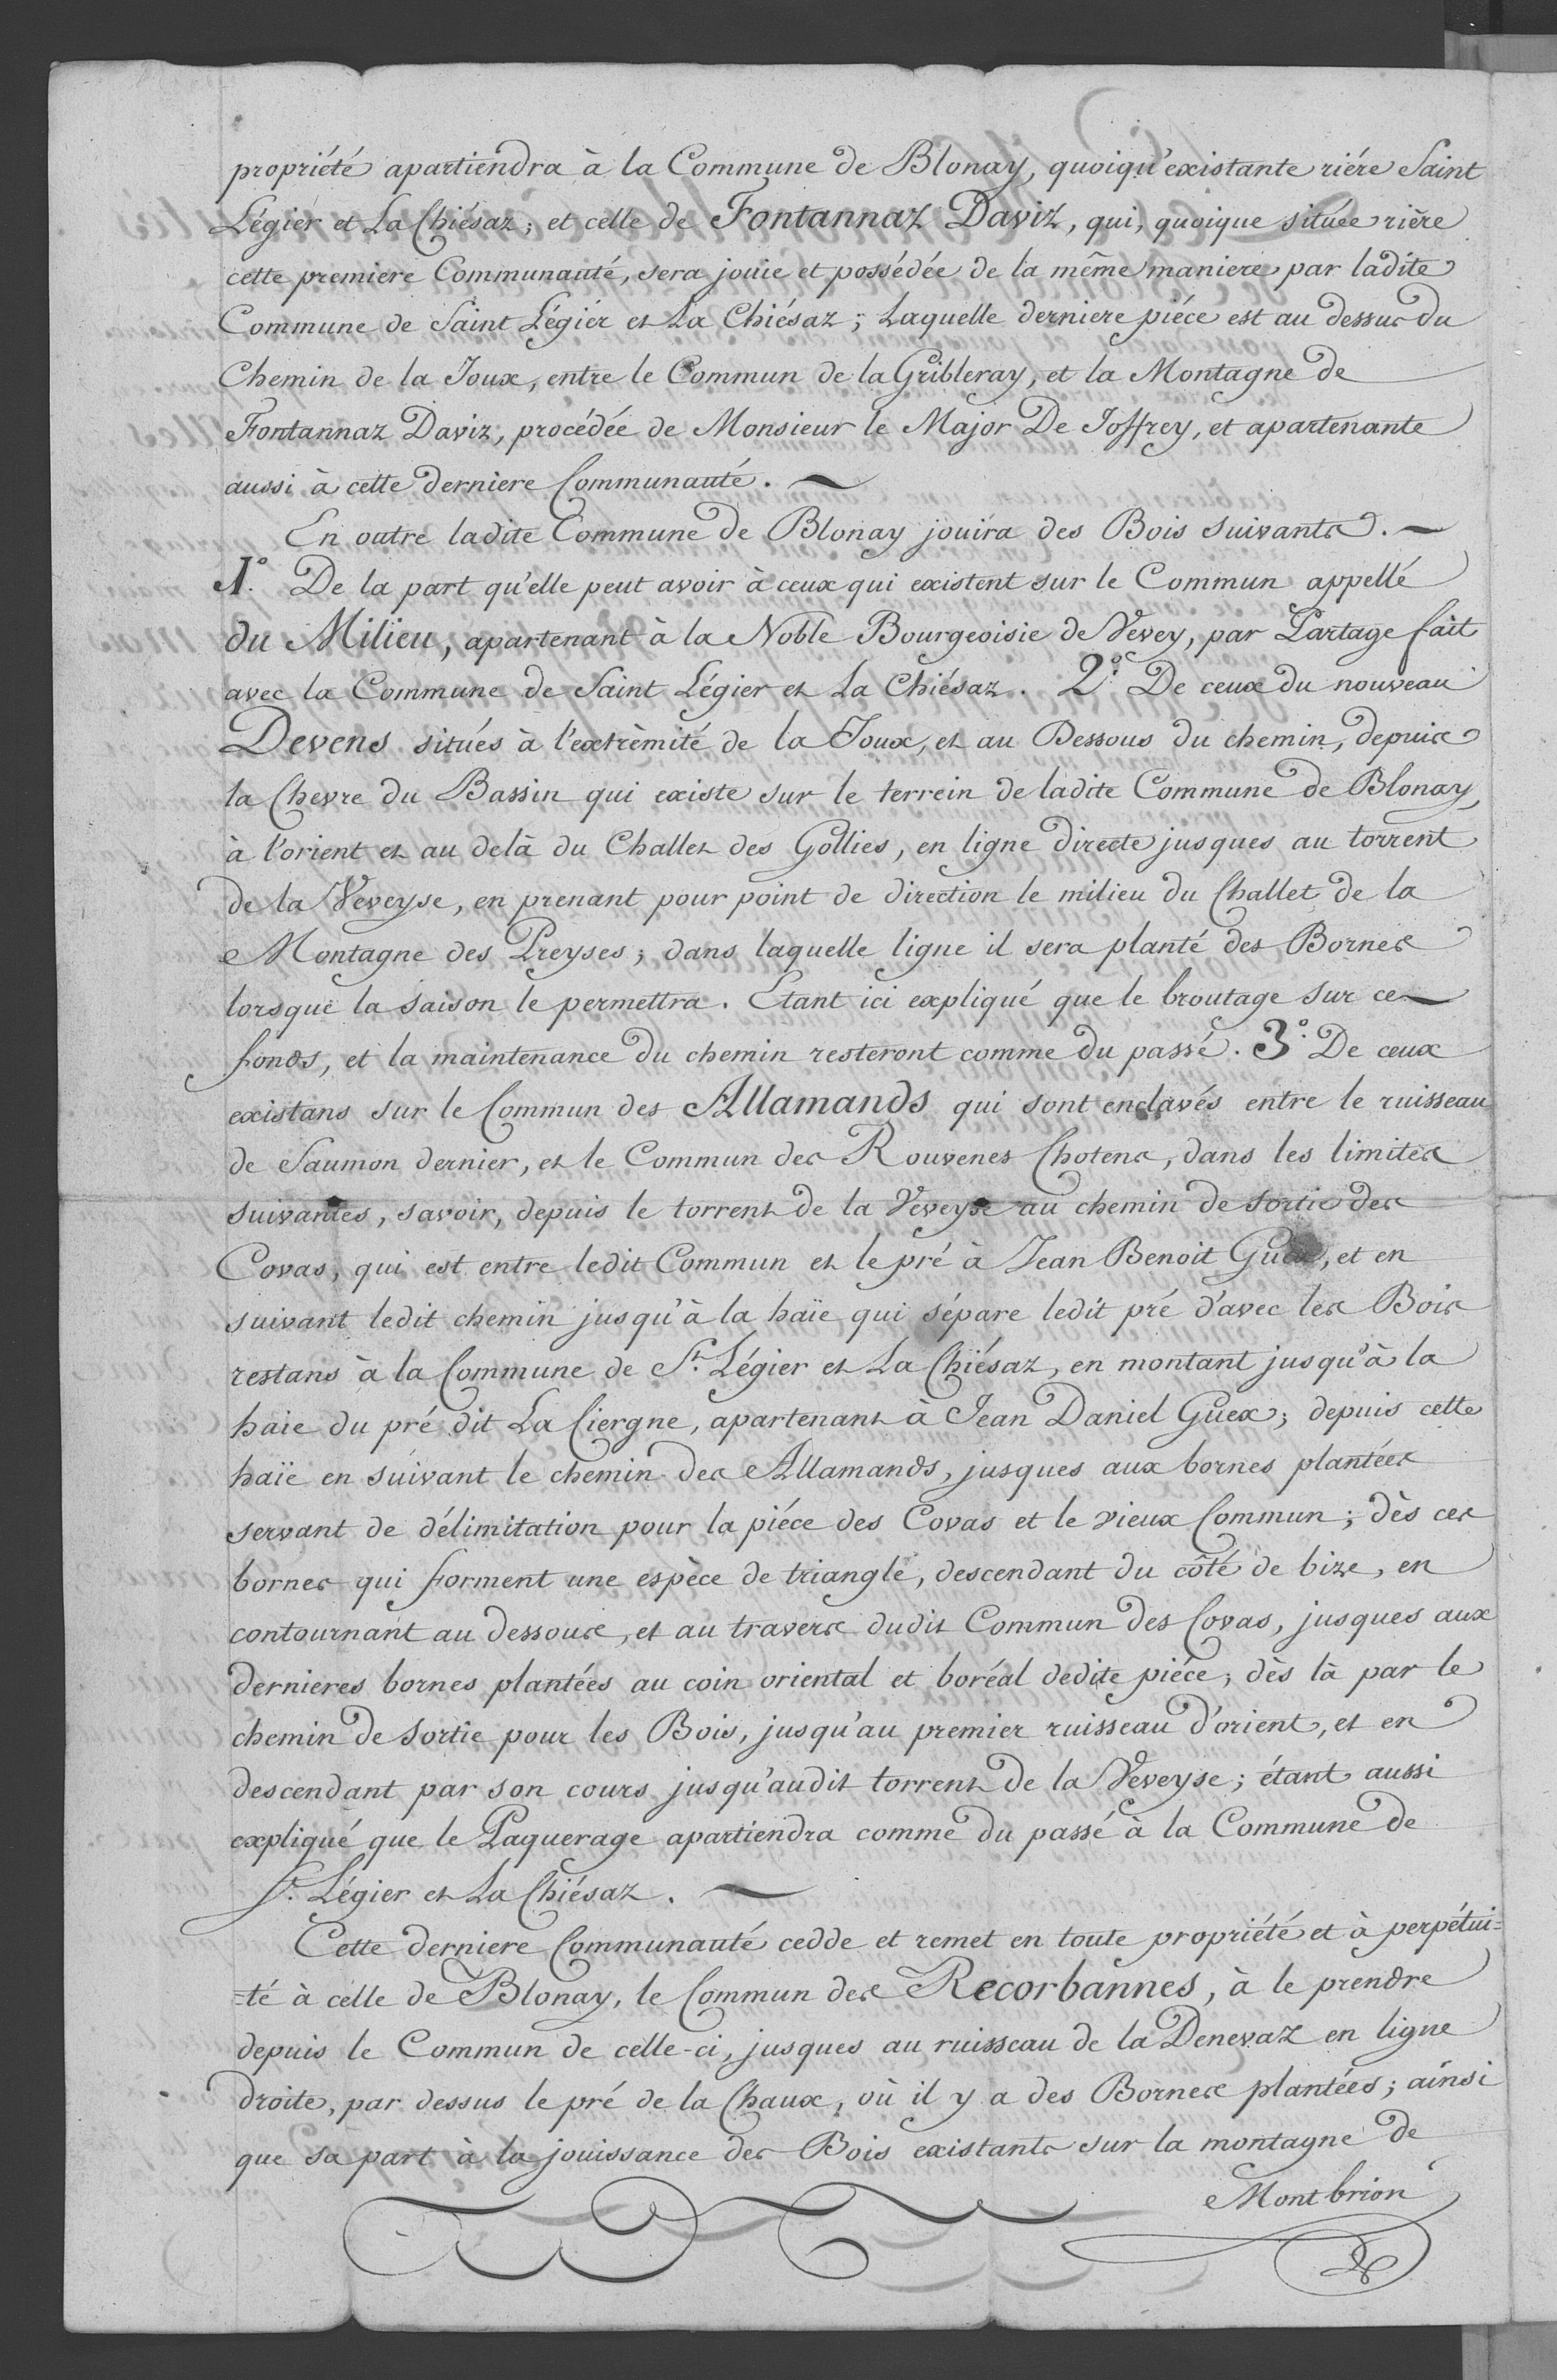 propriété apartiendra à la Commune de Blonay, quoiqu'existante riére Saint
Légier et La Chiésaz; et celle de Fontannaz Daviz, qui, quoique située rière
cette premiere Communauté, sera jouie et possédée de la même maniere par ladite
Commune de Saint Légier et La Chiésaz; Laquelle derniere piéce est au dessus du
Chemin de la Joux, entre le Commun de la Gribleray, et la Montagne de
Fontannaz Daviz, procédée de Monsieur le Major De Joffrey, et apartenante
aussi à cette derniere Communauté.
En outre ladite Commune de Blonay jouira des Bois suivants.
1° De la part qu'elle peut avoir à ceux qui existent sur le Commun appellé
du Milieu, apartenant à la Noble Bourgeoisie de Vevey, par Partage fait
avec la Commune de Saint Légier et La Chiésaz. 2° De ceux du nouveau
Devens situés à l'extrèmité de la Joux, et au Dessous du chemin, depuis
la Chevre du Bassin qui existe sur le terrein de ladite Commune de Blonay,
à l'orient et au delà du Challet des Gollies, en ligne directe jusques au torrent
de la Veveyse, en prenant pour point de direction le milieu du Challet de la
Montagne des Preyses; dans laquelle ligne il sera planté des Bornes
lorsque la saison le permettra. Etant ici expliqué que le broutage sur ce
fonds, et la maintenance du chemin resteront comme du passé. 3° De ceux
existans sur le Commun des Allamands qui sont enclavés entre le ruisseau
de Saumon dernier, et le Commun des Rouvenes Chotens, dans les limites
suivantes, savoir, depuis le torrent de la Veveyse au chemin de sortie des
Covas, qui est entre ledit Commun et le pré à Jean Benoit Guex, et en
suivant ledit chemin jusqu'à la haïe qui sépare ledit pré d'avec les Bois
restans à la Commune de St. Légier et La Chiésaz, en montant jusqu'à la
haie du pré dit La Ciergne, apartenant à Jean Daniel Guex; depuis cette
haïe en suivant le chemin des Allamands, jusques aux bornes plantées
servant de délimitation pour la piéce des Covas et le vieux Commun; dès ces
bornes qui forment une espèce de triangle, descendant du côté de bize, en
contournant au dessous, et au travers dudit Commun des Covas, jusques aux
dernieres bornes plantées au coin oriental et boréal dedite piéce; dès là par le
chemin de sortie pour les Bois, jusqu'au premier ruisseau d'orient, et en
descendant par son cours jusqu'audit torrent de la Veveyse; étant aussi
expliqué que le Paquerage apartiendra comme du passé à la Commune de
St. Légier et La Chiésaz.
Cette derniere Communauté cedde et remet en toute propriété et à perpétui=
=té à celle de Blonay, le Commun des Recorbannes, à le prendre
depuis le Commun de celle-ci, jusques au ruisseau de la Denevaz en ligne
droite, par dessus le pré de la Chaux, où il y a des Bornes plantées; ainsi
que sa part à la jouissance des Bois existants sur la montagne de
Montbrion